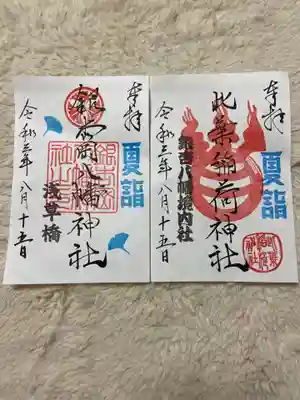 奉拝
夏詣
銀杏岡八幡神社
浅草橋
令和三年八月十五日
奉拝
夏詣
此葉稲荷神社
銀杏八幡境内社
令和三年八月十五日